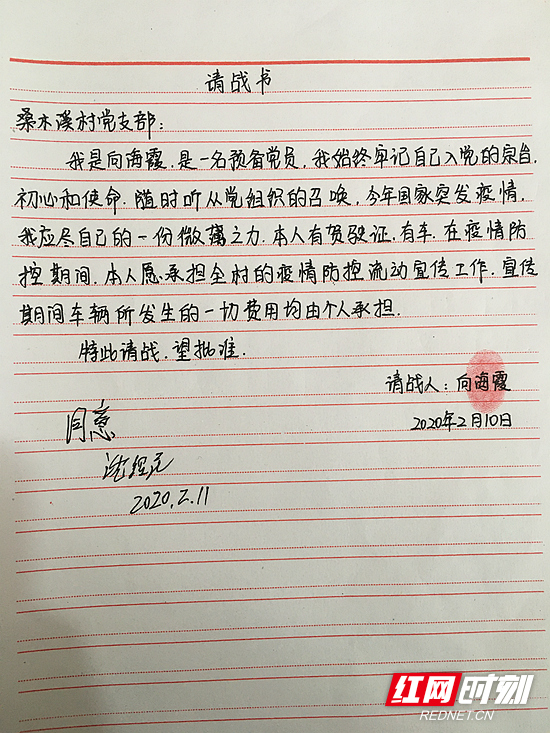 请战书
桑木溪村党支部：
我是向海霞，是一名预备党员，我始终牢记自己入党的宗旨，
初心和使命，随时听从党组织的召唤，今年国家突发疫情，
我应尽自己的一份微薄之力，本人有驾驶证，有车，在疫情防
控期间，本人愿承担全村的疫情防控流动宣传工作，宣传
期间车辆所发生的一切费用均由个人承担。
特此请战，望批准。
请战人：向海霞
2020年2月10日
同意
2020.2.11
红网时刻
REDNET.CN